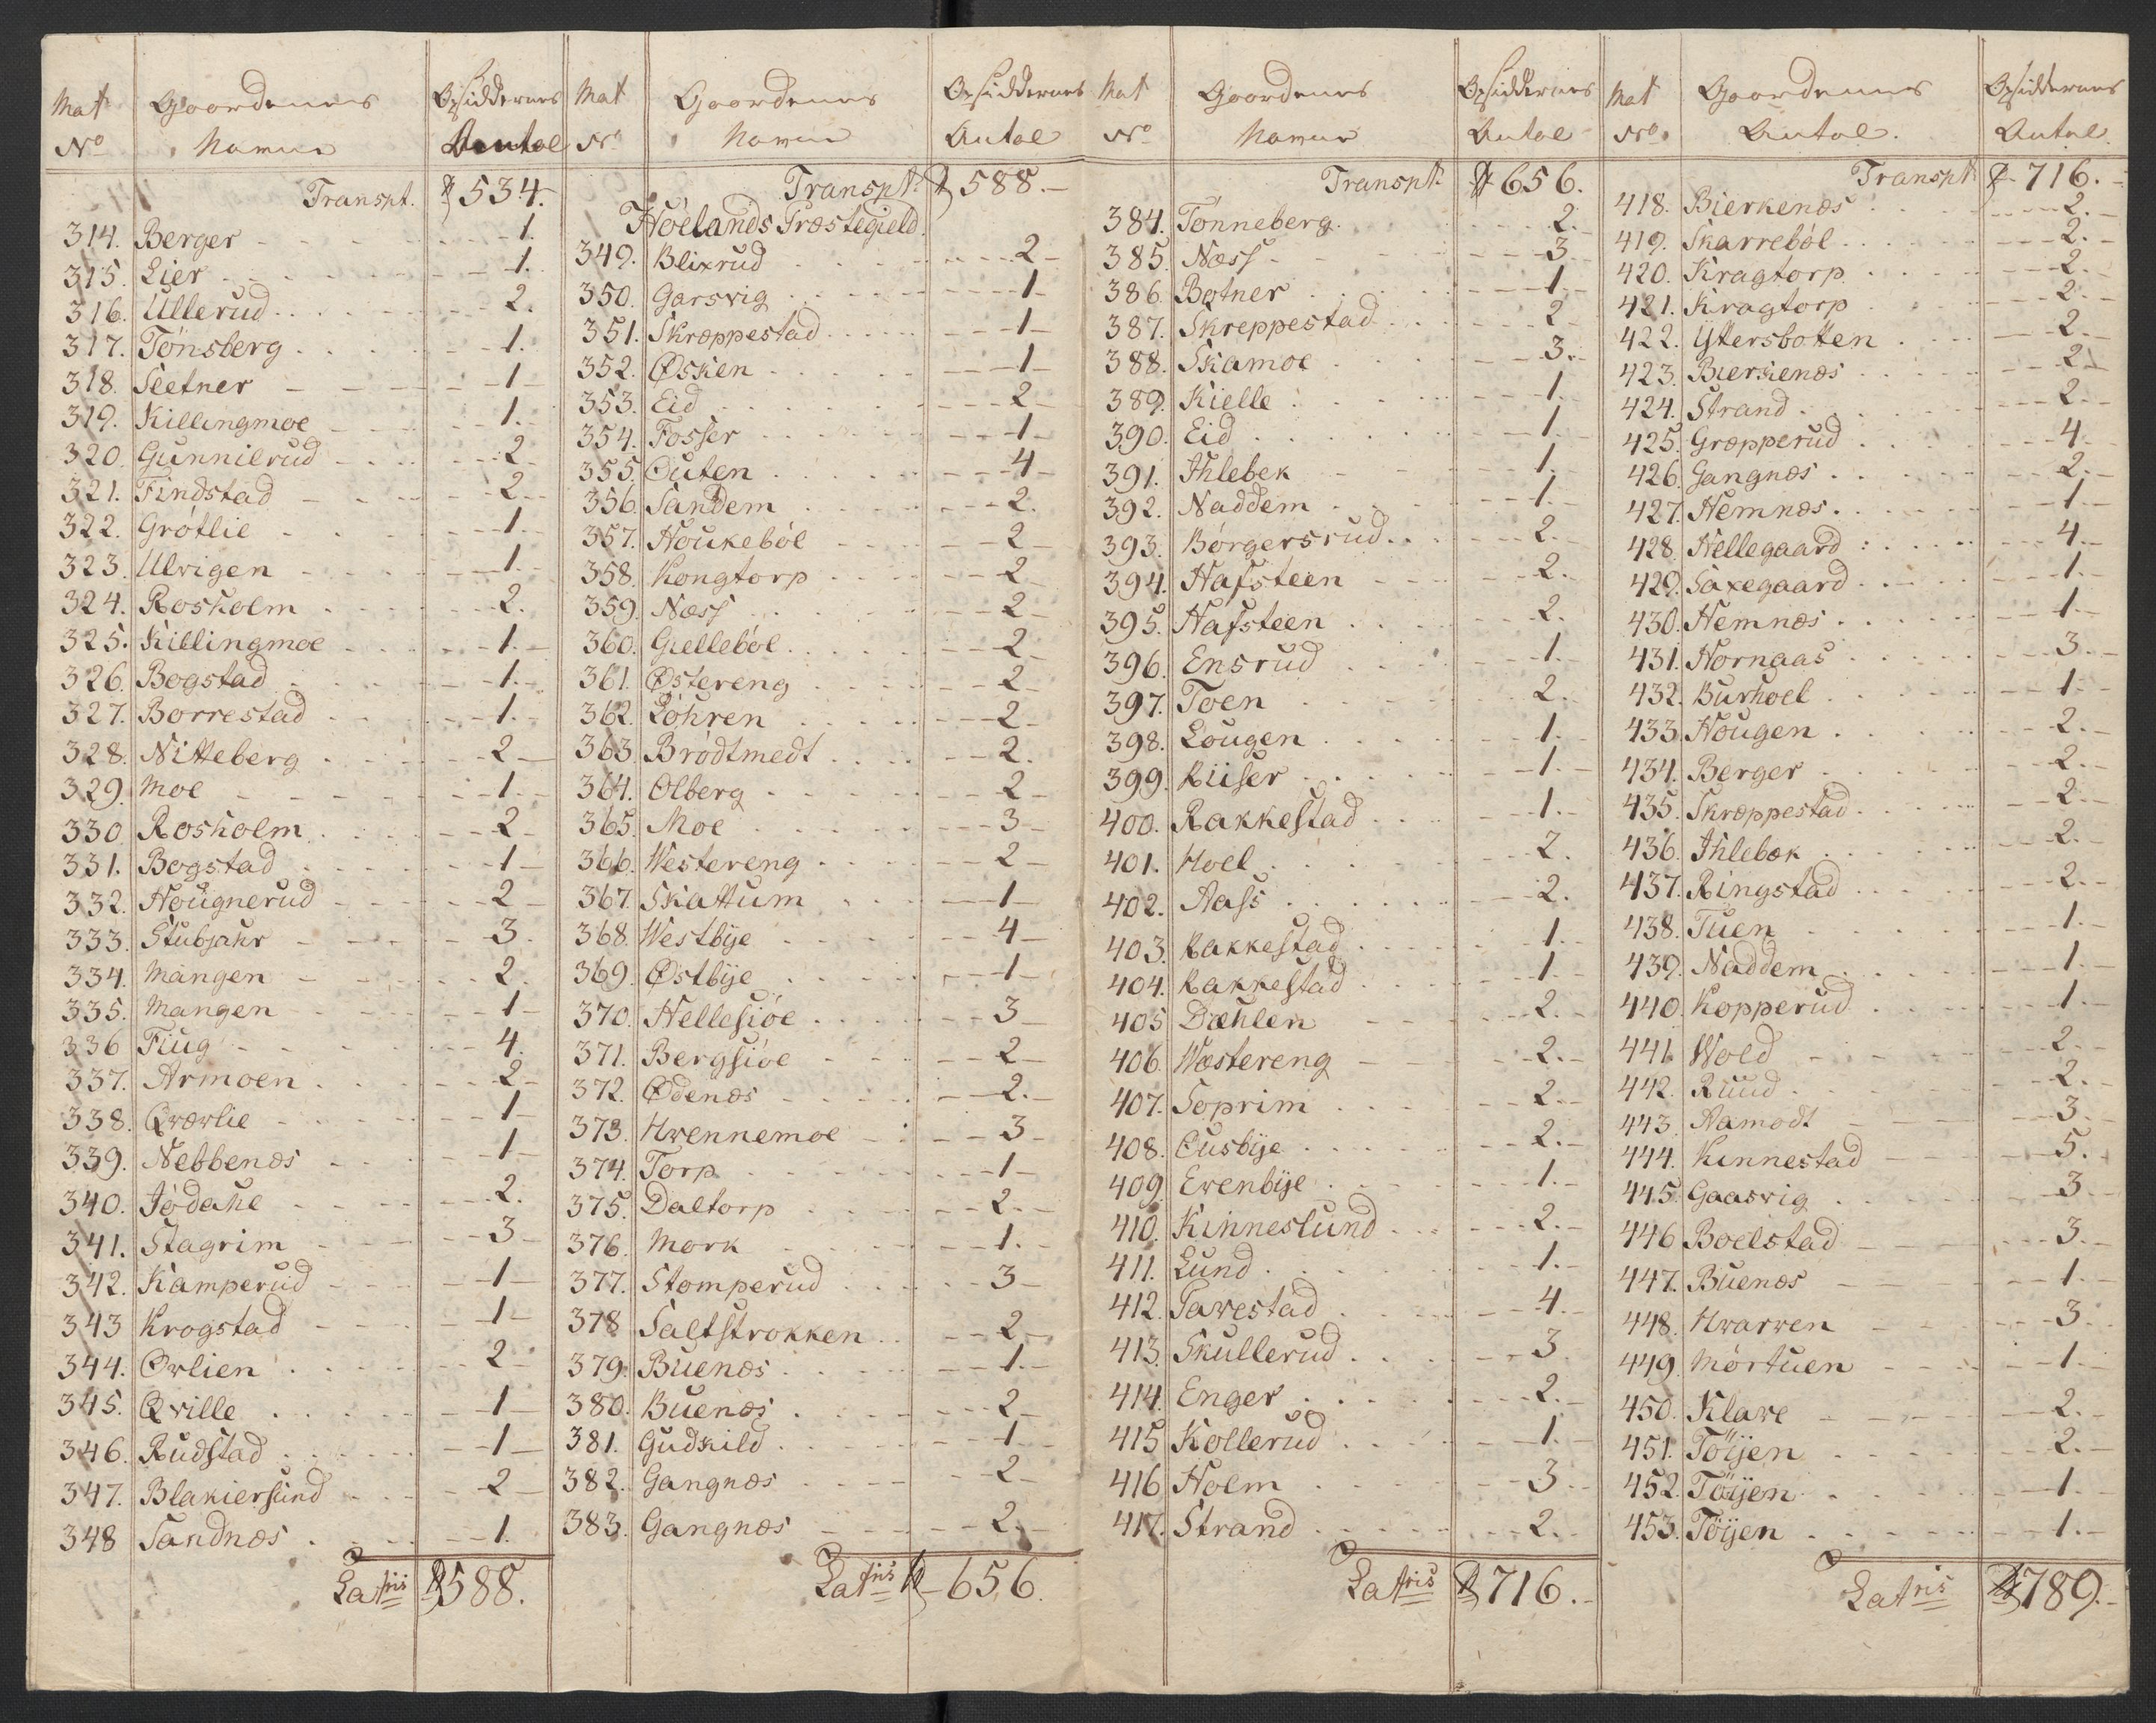 Mat No Gaardenes Navne Opsiddernes Antal
Transpt. 534.
314. Berger 1.
315. Lier 1.
316. Ullerud 2.
317. Tönsberg 1.
318. Sletner 1
319. Killingmoe 1.
320. Gunnilrud 2
321. Findstad 2
322. Grötlie 1.
323. Ulvigen 1.
324. Rosholm 2.
325. Killingmoe 1.
326. Bogstad 1.
327. Borrestad 1.
328. Nitteberg 2
329. Moe 1.
330 Rosholm 2
331. Bogstad 1
332. Hougnerud 2
333. Stubjahr 3.
334. Mangen 2.
335. Mangen 1
336 Fiug 4.
337. Armoen 2
338. Qværlie 1
339. Nebbenæs 1
340. Jödahl 2.
341. Stagrim 3
342. Kamperud 1
343 Krogstad 1
344. Ovlien 2
345. Qville 1
346. Rudstad 1
347. Blakiersund 2
348 Sandnæs 1.
Latris 588.
Mat No Gaardenes Navne Opsiddernes Antal
Transpt. 588.
Höelands Præstegield.
349. Blixrud 2
350. Garsvig 1
351. Skræppestad 1
352. Øsken 1
353. Eid 2
354. Fosser 1
355. Outen 4
356. Sandem 2.
357. Houkeböl 2
358. Kongtorp 2
359. Næss 2
360. Gielleböl 2
361. Østereng 2
362. Löhren 2
363. Brödtmedt 2.
364. Olberg 2
365. Moe 3
366. Westereng 2
367. Skattum 1
368. Westbye 4
369. Østbye 1
370. Hellesiöe 3
371. Bergsiöe 2
372. Ødenæs 2.
373. Hvennemoe 3
374. Torp 1
375. Daltorp 2.
376. Mork 1.
377. Stomperud 3
378 Saltstrokken 2
379. Buenæs 1.
380. Buenæs 2
381. Gudkild 1
382. Gangnæs 2
383. Gangnæs 2.
Latris 656.
Mat No Gaardenes Navne Opsiddernes Antal
Transpt. 656.
384. Tönneberg 2.
385. Næss 3
386. Botner 1
387. Skreppestad 2
388. Skamoe 3.
389. Kielle 1.
390. Eid 1.
391. Ihlebek 1.
392. Naddem 1.
393. Börgersrud 2.
394. Hafsteen 2.
395. Hafsteen 2.
396. Ensrud 1.
397. Toen 2.
398. Lougen 1.
399. Riiser 1.
400. Rakkestad 1.
401. Hoel 2.
402. Aass 2.
403. Rakkestad 1.
404. Rakkestad 1.
405 Dæhlen 2.
406. Wæstereng 2.
407. Soprim 2.
408. Ousbye 2.
409. Evenbye 1.
410. Kinneslund 2.
411. Lund 1.
412. Tavestad 4.
413. Skullerud 3
414. Enger 2.
415 Kollerud 1.
416 Holm 3.
417. Strand 2.
Latris 716.
Mat No. Gaardenes Antal. Opsiddernes Antal.
Transpt 716.
418. Bierkenæs 2.
419. Skarreböl 2.
420. Kragtorp 2.
421. Kragtorp 2.
422. Yttersbotten 2.
423. Bierkenæs 2.
424. Strand 2.
425. Græpperud 4.
426. Gangnæs 2.
427. Hemnæs 1.
428. Hellegaard 4.
429. Saxegaard 1.
430. Hemnæs 1.
431. Hornaas 3.
432. Burhoel 1.
433. Hougen 2.
434. Berger 2.
435. Skræppestad 2.
436. Ihlebæk 2.
437. Ringstad 2.
438. Tuen 1.
439. Naddem 1.
440. Kopperud 1.
441. Wold 2.
442. Ruud 2.
443. Aamodt 3.
444. Kinnestad 5.
445. Gaasvig 3.
446 Boelstad 3.
447. Buenæs 1.
448. Hvarven 3.
449. Mörtuen 1.
450. Klave 2.
451. Töyen 2.
452. Töyen 1.
453. Töyen 1.
Latris 789.